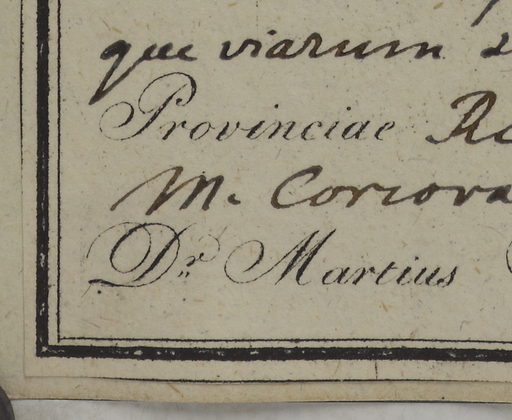 que viarum
Provinciae
M. Corcova
Dr Martius